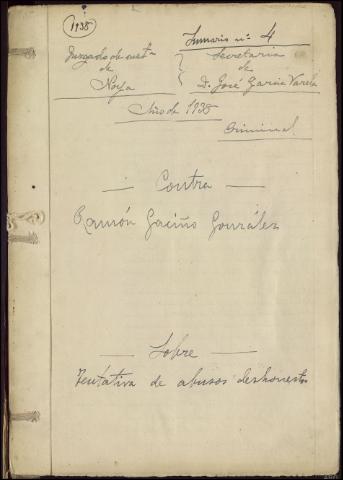 1938
Sumario nº 4
Juzgado de inst.ª
de
Noya
Secretaria
de
D. José Garcia Varela
Año de 1938
Criminal
Contra
Ramón Gaciño González
Sobre
Tentativa de abusos deshonestos